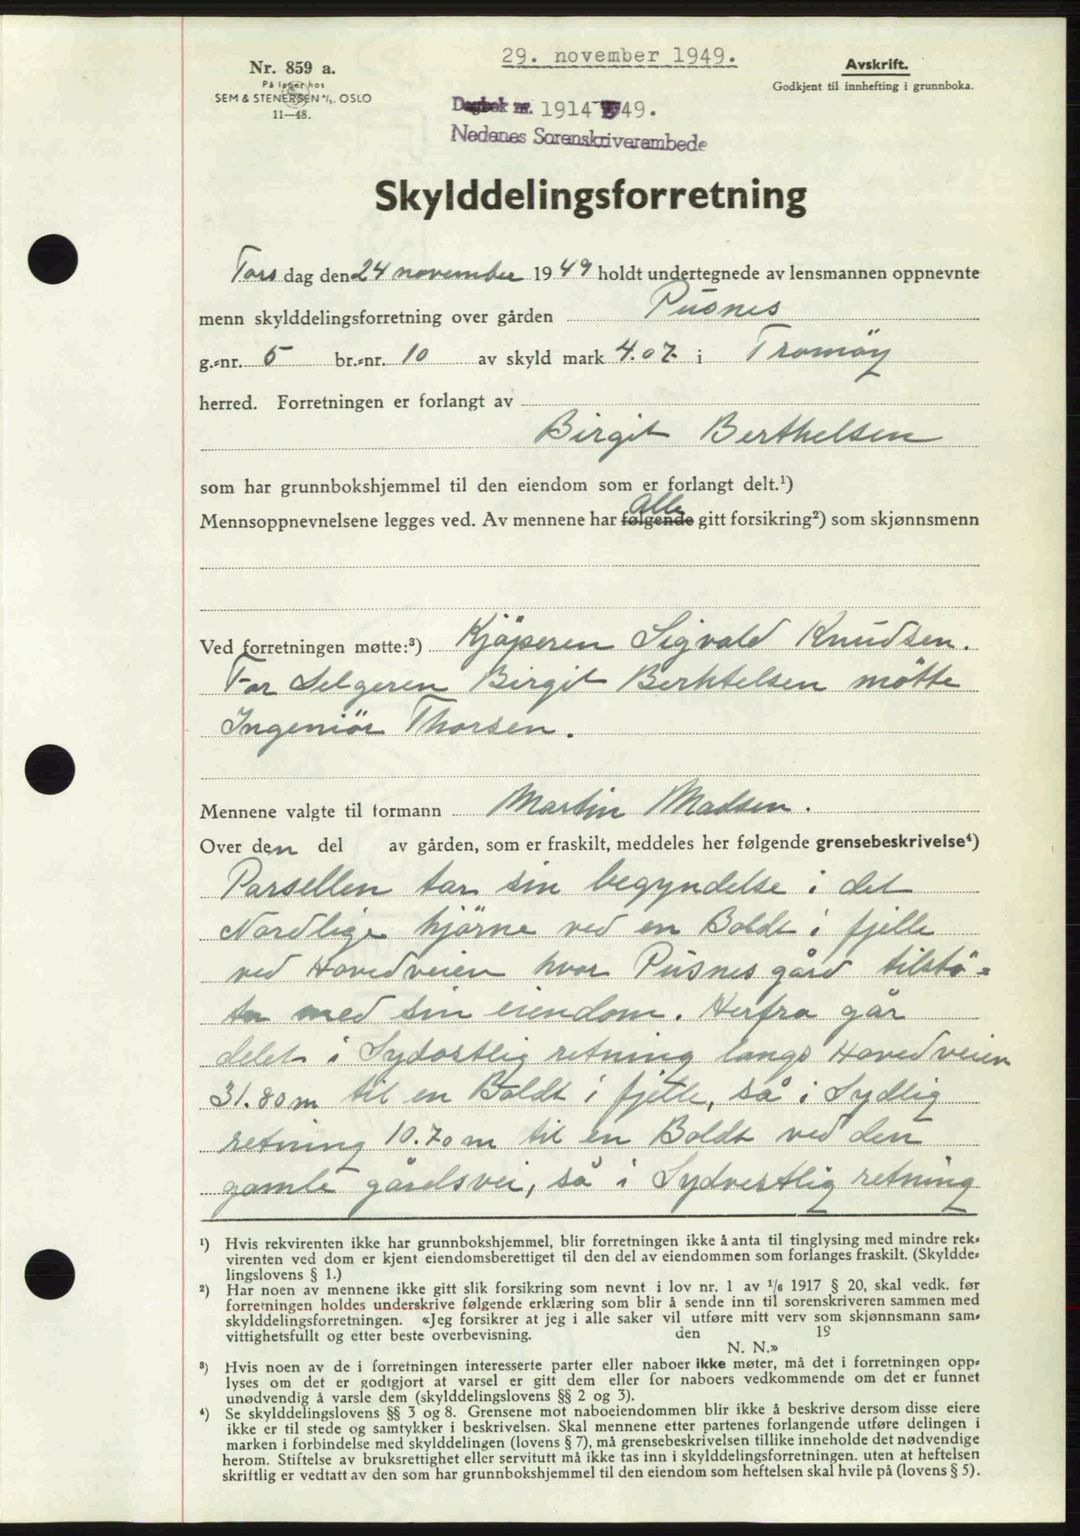 29. november 1949.
Nr. 859 a.
På lager hos
SEM & STENERSEN A/S. OSLO
11—48.
Avskrift.
Godkjent til innhefting i grunnboka.
Dagbok nr. 1914 - 49.
Nedenes Sorenskriverembede
Skylddelingsforretning
Tors dag den 24 november 1949 holdt undertegnede av lensmannen oppnevnte
menn skylddelingsforretning over gården Pusnes
g.-nr. 5 br.-nr. 10 av skyld mark 4.07 i Tromøy
herred. Forretningen er forlangt av
Birgit Berthelsen
som har grunnbokshjemmel til den eiendom som er forlangt delt.¹)
Alle
Mennsoppnevnelsene legges ved. Av mennene har følgende gitt forsikring²) som skjønnsmenn
Ved forretningen møtte:³) Kjøperen Sigvald Knudsen.
For Selgeren Birgit Berhtelsen møtte
Ingeniør Thorsen.
Mennene valgte til formann Martin Madsen.
Over den del av gården, som er fraskilt, meddeles her følgende grensebeskrivelse⁴)
Parsellen tar sin begyndelse i det
Nordlige hjørne ved en Boldt i fjelle
ved Hovedveien hvor Pusnes gård tilstø=
ter med sin eiendom. Herfra går
delet i Sydøstlig retning langs Hovedveien
31.80 m til en Boldt i fjelle, så i Sydlig
retning 10.70 m til en Boldt ved den
gamle gårdsvei, så i Sydvestlig retning
¹) Hvis rekvirenten ikke har grunnbokshjemmel, blir forretningen ikke å anta til tinglysing med mindre rek-
virenten ved dom er kjent eiendomsberettiget til den del av eiendommen som forlanges fraskilt. (Skyldde-
lingslovens § 1.)
²) Har noen av mennene ikke gitt slik forsikring som nevnt i lov nr. 1 av 1/6 1917 § 20, skal vedk. før
forretningen holdes underskrive følgende erklæring som blir å sende inn til sorenskriveren sammen med
skylddelingsforretningen. «Jeg forsikrer at jeg i alle saker vil utføre mitt verv som skjønnsmann sam-
vittighetsfullt og etter beste overbevisning. den 19
N. N.»
³) Hvis noen av de i forretningen interesserte parter eller naboer ikke møter, må det i forretningen opp-
lyses om det er godtgjort at varsel er gitt dem eller for naboers vedkommende om det er funnet
unødvendig å varsle dem (skylddelingslovens §§ 2 og 3).
⁴) Se skylddelingslovens §§ 3 og 8. Grensene mot naboeiendommen blir ikke å beskrive dersom disse eiere
ikke er til stede og samtykker i beskrivelsen. Skal mennene etter partenes forlangende utføre delingen i
marken i forbindelse med skylddelingen (lovens § 7), må grensebeskrivelsen tillike inneholde det nødvendige
herom. Stiftelse av bruksrettighet eller servitutt må ikke tas inn i skylddelingsforretningen. uten at heftelsen
skriftlig er vedtatt av den som har grunnbokshjemmel til den eiendom som heftelsen skal hvile på (lovens § 5).